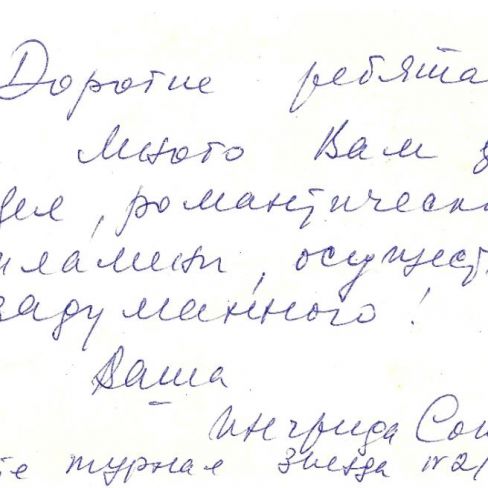 Дорогие ребята
Много Вам з
дел, романтическ
пламени, осущест
задуманного!
Ваша
Ингрида Сои
те журнал звезда №2/